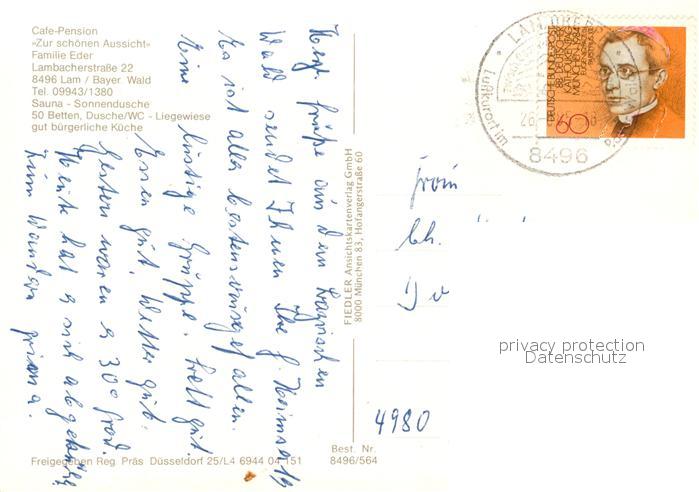 Cafe-Pension
»Zur schönen Aussicht«
Familie Eder
Lambacherstraße 22
8496 Lam / Bayer. Wald
Tel. 09943/1380
Sauna - Sonnendusche
50 Betten, Dusche/WC - Liegewiese
gut bürgerliche Küche
Herzl. Grüße aus dem Bayrischen
Wald sendet Ihnen Ihre
Es ist alles bestens ausgefallen.
Eine lustige Gruppe. Bett gut.
Essen gut. Wetter gut.
Gestern waren es 30 Grad.
Heute hat es sich abgekühlt
zum Wandern prima.
FIEDLER Ansichtskartenverlag GmbH
8000 München 83, Hofangerstraße 60
Freigegeben Reg. Präs Düsseldorf 25/L4 6944 04 151
Best. Nr.
8496/564
LAM, OBERPF
Luftkurort im
26.
8496
DEUTSCHE BUNDESPOST
60
Frau
4980
privacy protection
Datenschutz